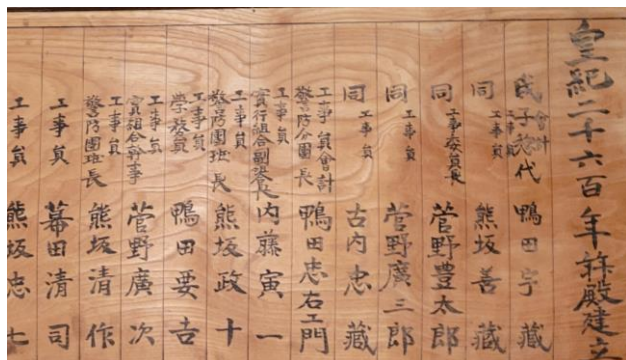 皇紀二千六百年拝殿建立
氏子総代 会計 工事員 鴨田宇蔵
同 工事員 熊坂善蔵
同 工事委員長 菅野豊太郎
同 工事員 菅野廣三郎
同 工事員 古内忠蔵
工事員會計 警防分團長 鴨田忠右エ門
工事員 實行組合副組長 内藤寅一
工事員 警防團班長 熊坂政十
工事員 鴨田要吉
工事員 實組合幹事 菅野廣次
工事員 警防團班長 熊坂清作
工事員 幕田清司
工事員 熊坂忠七